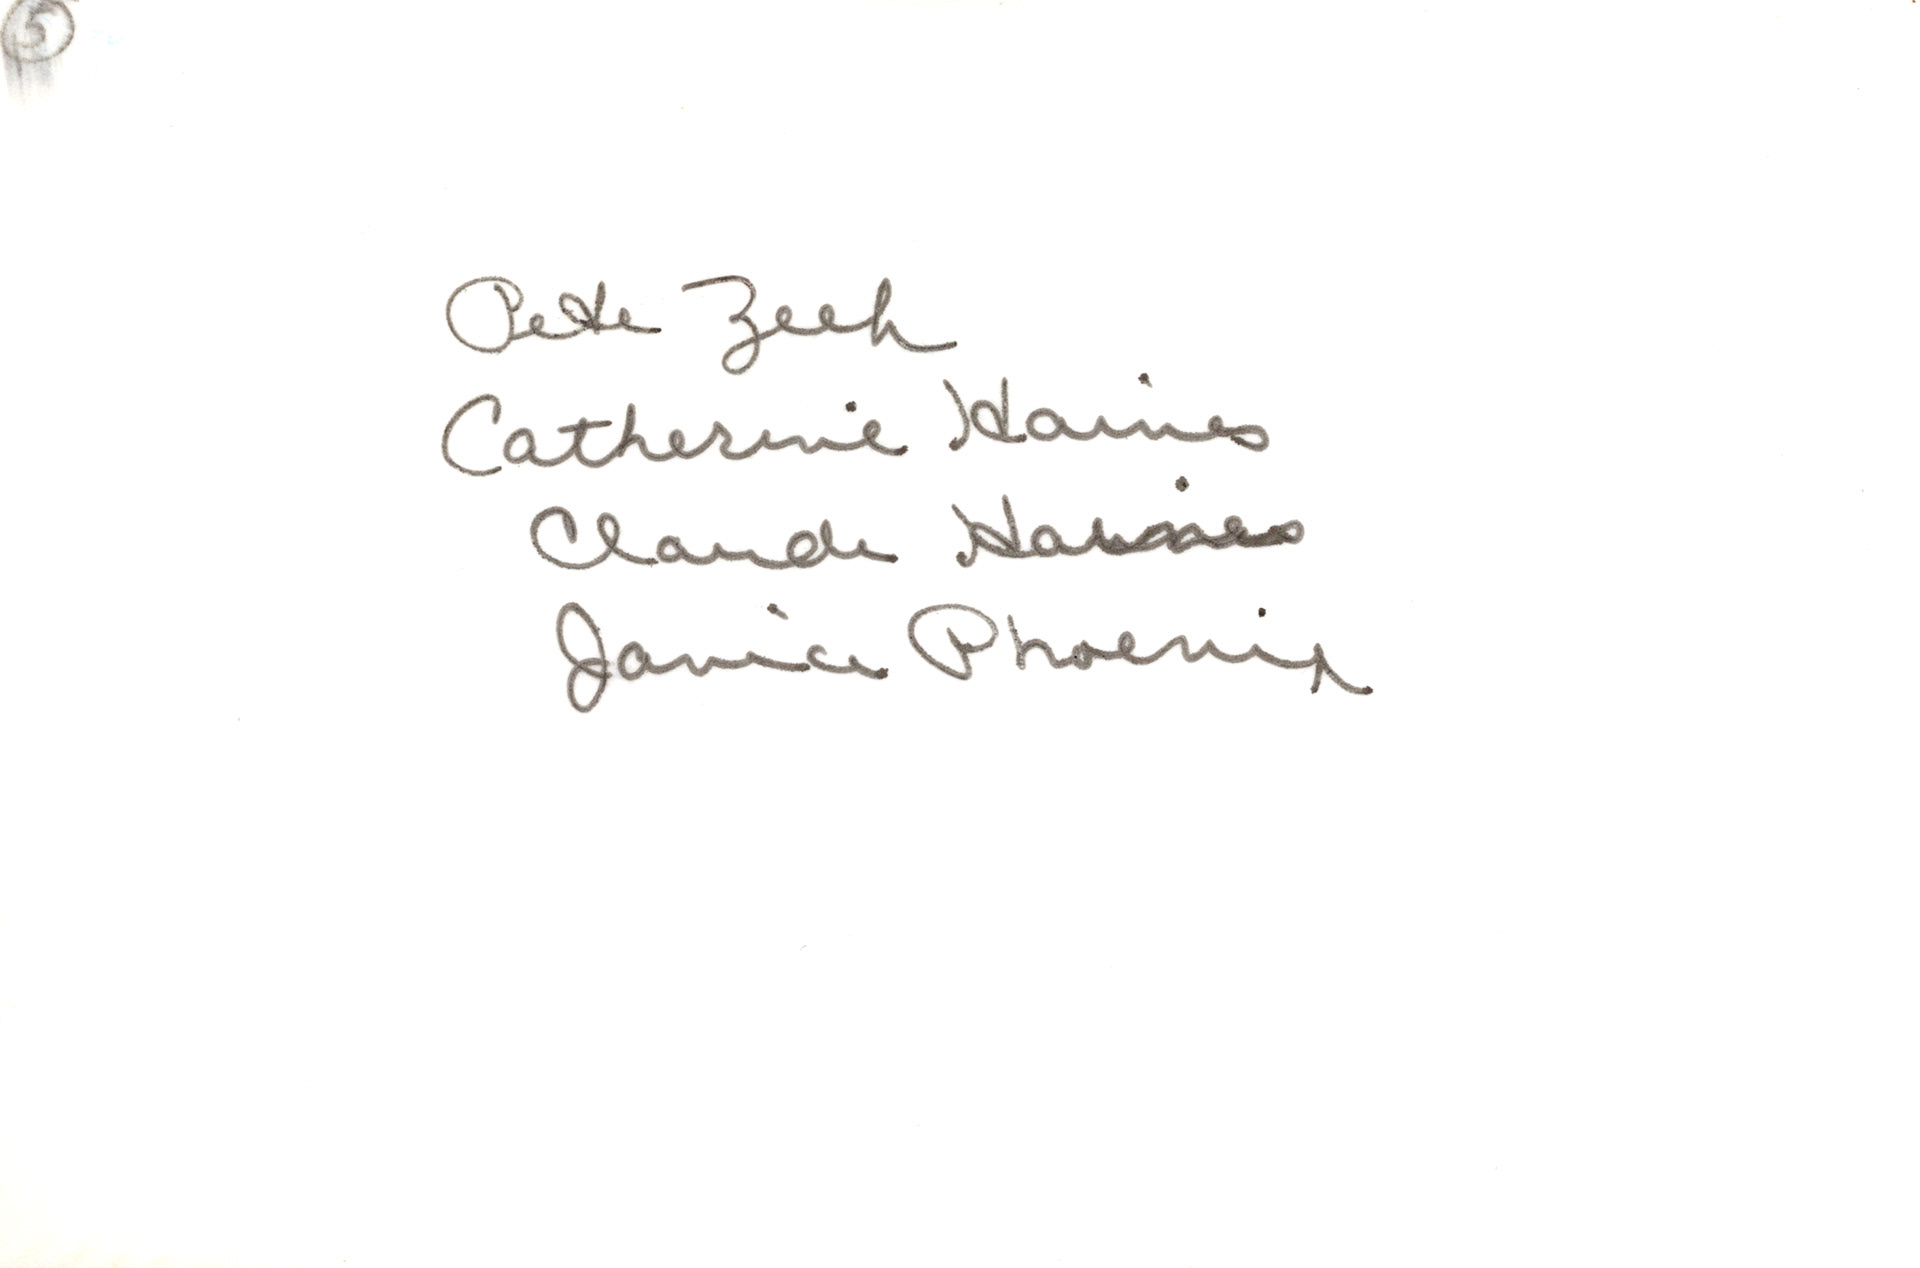 5
Pete Zeeh
Catherine Haines
Claude Haines
Janice Phoenix